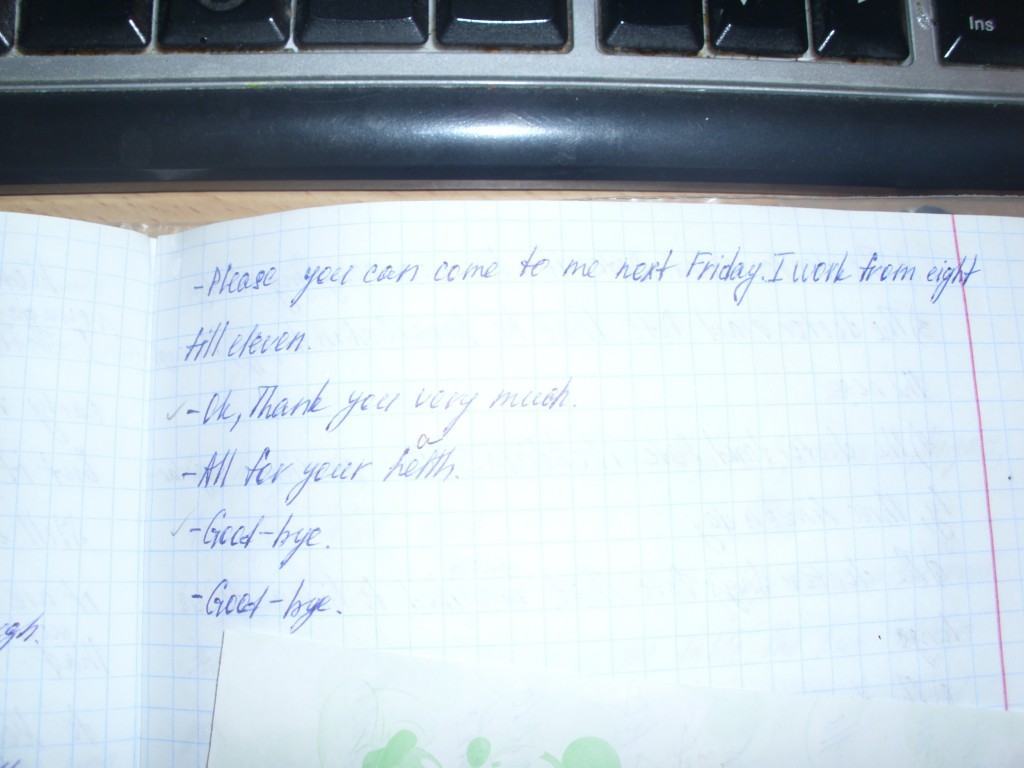 Ins
-Please you can come to me next Friday. I work from eight
till eleven.
-Ok, Thank you very much.
a
-All for your helth.
-Good-bye.
-Good-bye.